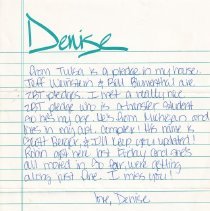 Denise
from Tulsa is a pledge in my house.
Jeff Weinstein & Bill Blumenthal are
ZBT pledges. I met a really nice
ZBT pledge who is a transfer student
so he's my age. He's from Michigan and
lives in my apt. complex! His name is
Berger, & I'll keep you updated!
Robin got here last Friday and she's
all moved in. So far, we're getting
along just fine. I miss you!!
Love, Denise